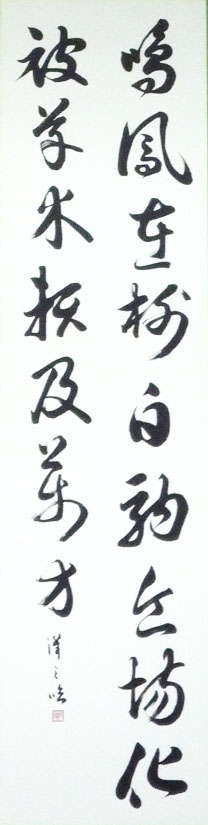 鳴鳳在樹白駒食場化
被草木頼及萬方